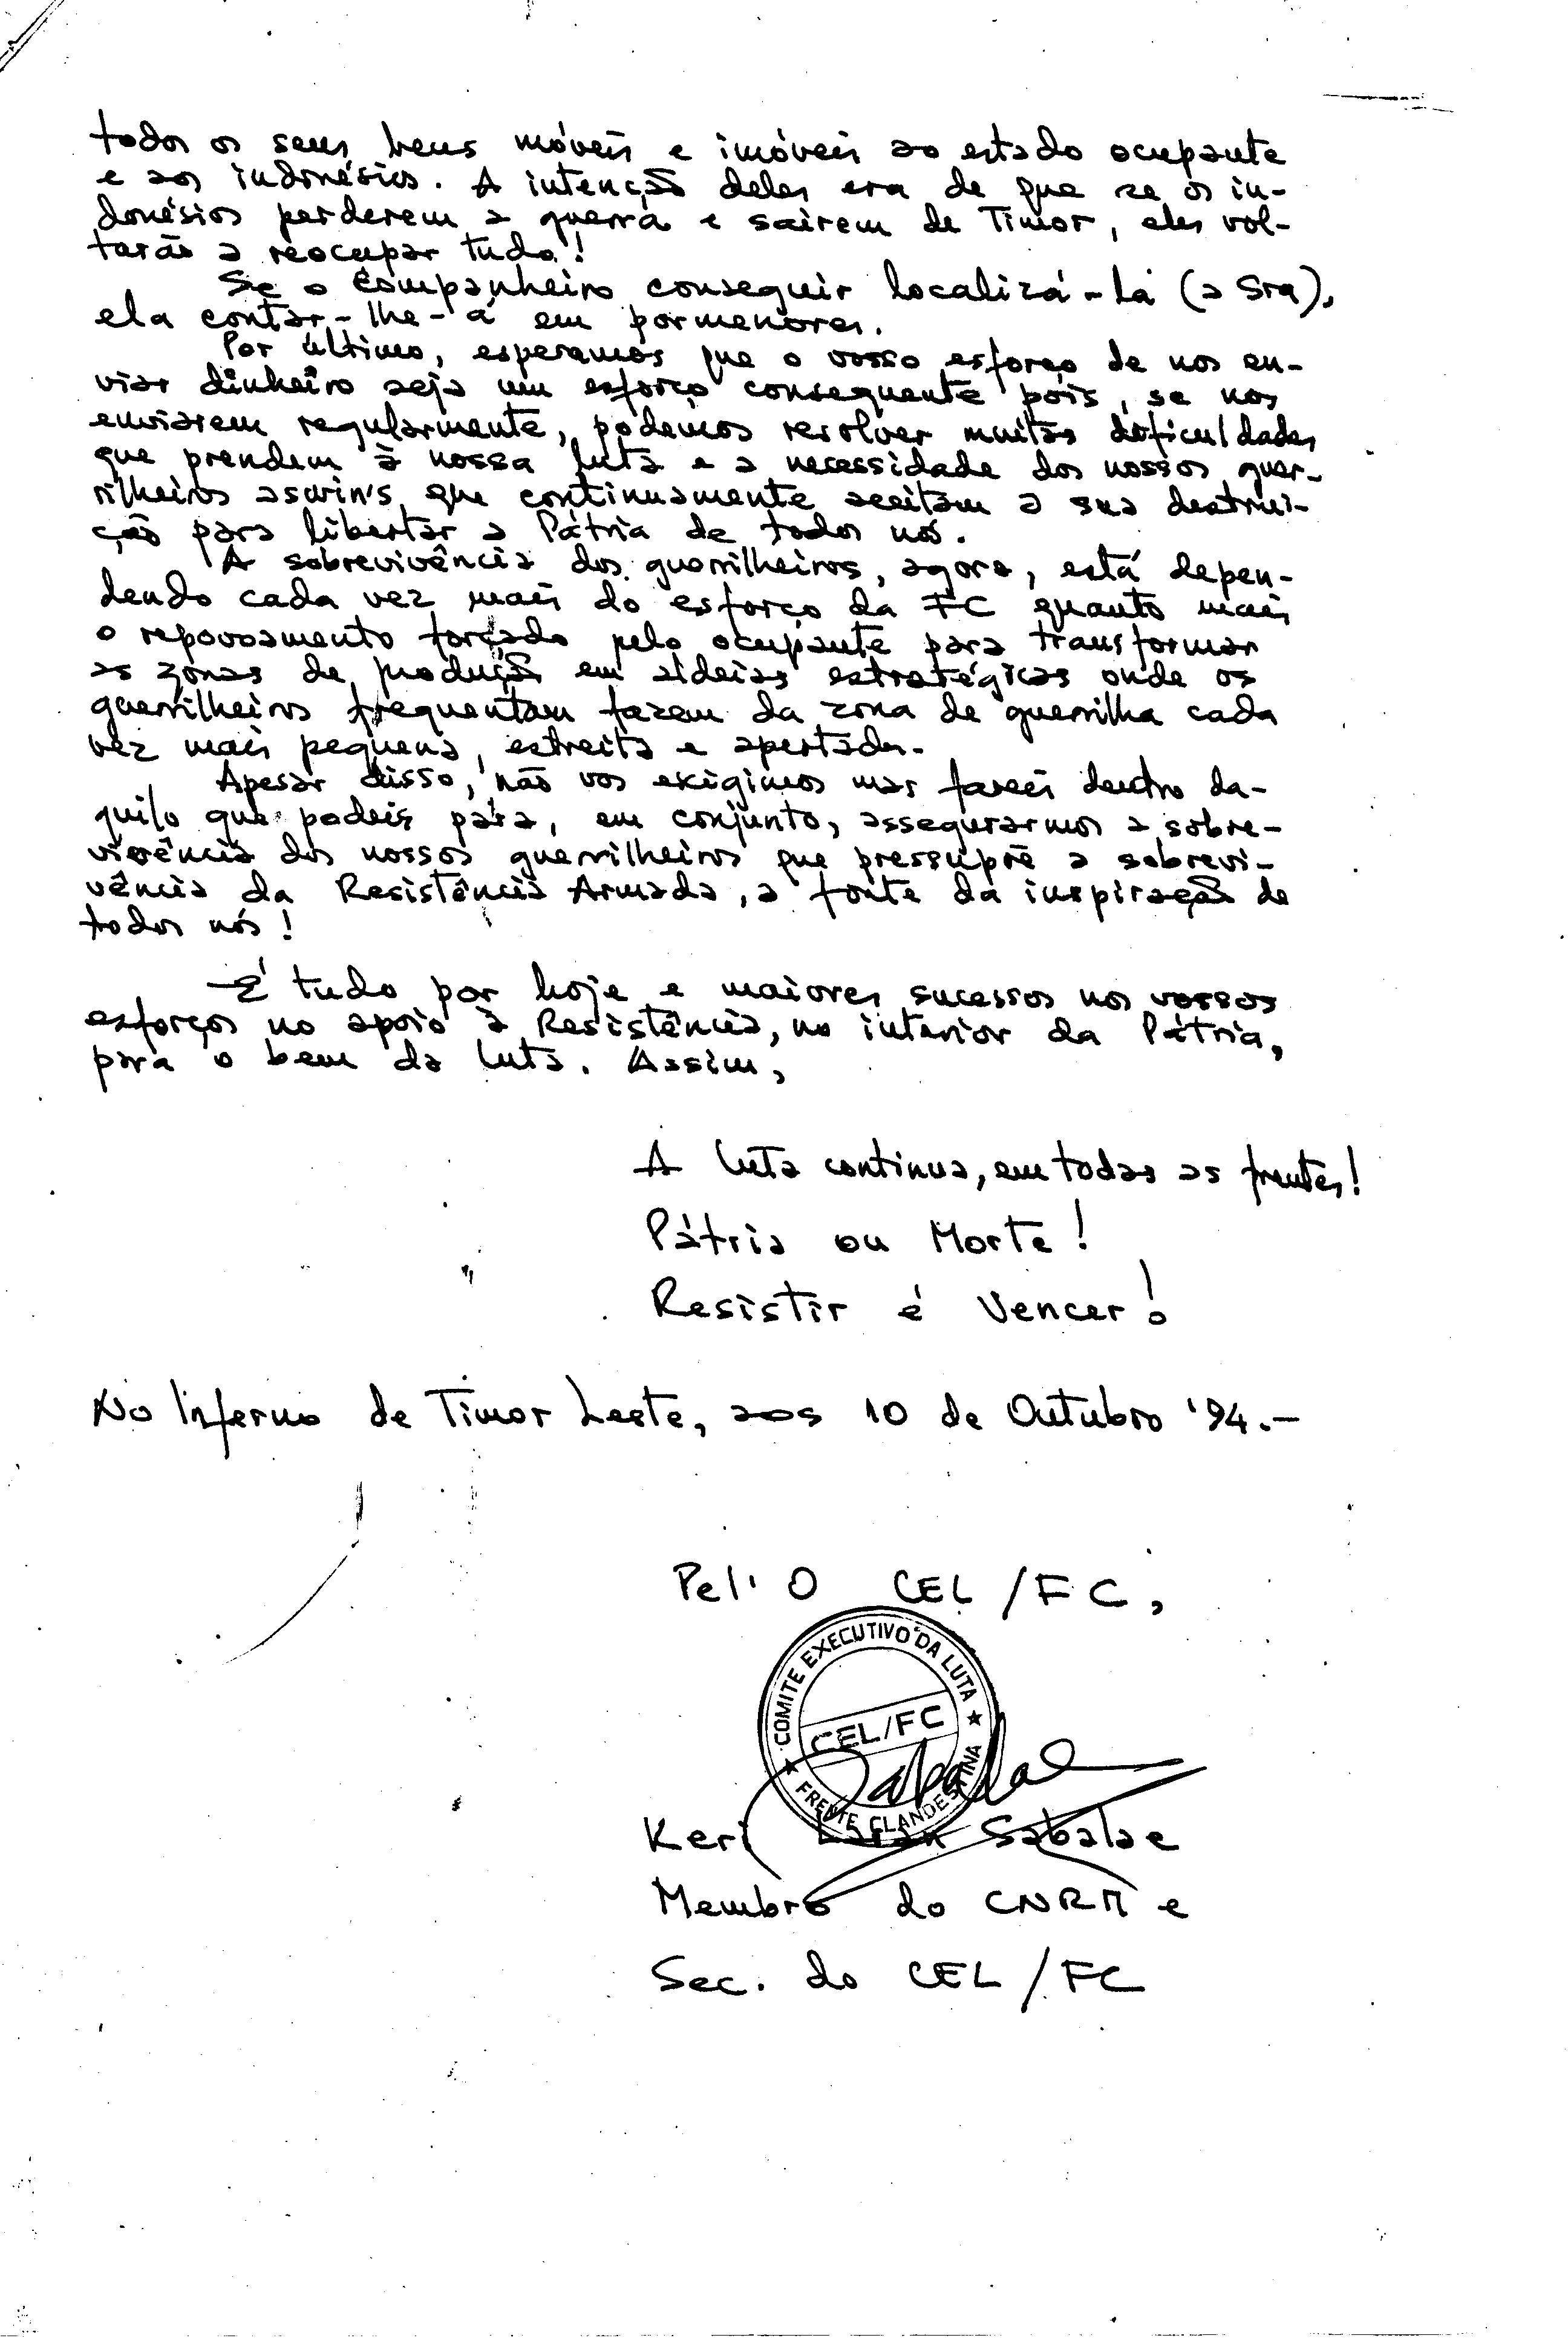 todos os seus bens móveis e imóveis ao estado ocupante
e aos indonésios. A intenção deles era de que se os in-
donésios perderem a guerra e sairem de Timor, eles vol-
tarão a reocupar tudo!
Se o Companheiro conseguir localizá-la (a Sra),
ela contar-lhe-á em pormenores.
Por último, esperamos que o vosso esforço de nos en-
viar dinheiro seja um esforço consequente pois, se nos
enviarem regularmente, podemos resolver muitas dificuldades
que prendem à nossa luta e a necessidade dos nossos guer-
rilheiros aswin's que continuamente aceitam a sua destrui-
ção para libertar a Pátria de todos nós.
A sobrevivência dos guerrilheiros, agora, está depen-
dendo cada vez mais do esforço da FC quanto mais
o repovoamento forçado pelo ocupante para transformar
as zonas de produção em aldeias estratégicas onde os
guerrilheiros frequentam fazem da zona de guerrilha cada
vez mais pequena, estreita e apertada.
Apesar disso, não vos exigimos mas fareis dentro da-
quilo que podeis para, em conjunto, assegurarmos a sobre-
vivência dos nossos guerrilheiros que pressupõe a sobrevi-
vência da Resistência Armada, a fonte da inspiração de
todos nós!
É tudo por hoje e maiores sucessos nos vossos
esforços no apoio à Resistência, no interior da Pátria,
para o bem da luta. Assim,
A luta continua, em todas as frentes!
Pátria ou Morte!
Resistir é Vencer!
No Inferno de Timor Leste, aos 10 de Outubro '94.-
Pel' O CEL/FC,
COMITE EXECUTIVO DA LUTA
CEL/FC
FRENTE CLANDESTINA
Sabalae
Keri Laran Sabalae
Membro do CNRM e
Sec. do CEL/FC